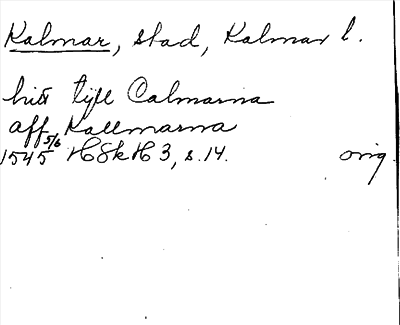 Kalmar, stad, Kalmar l.
hiit tijll Calmarna
aff Kallmarna
1545 5/6 HSkH 3, s. 14. orig.